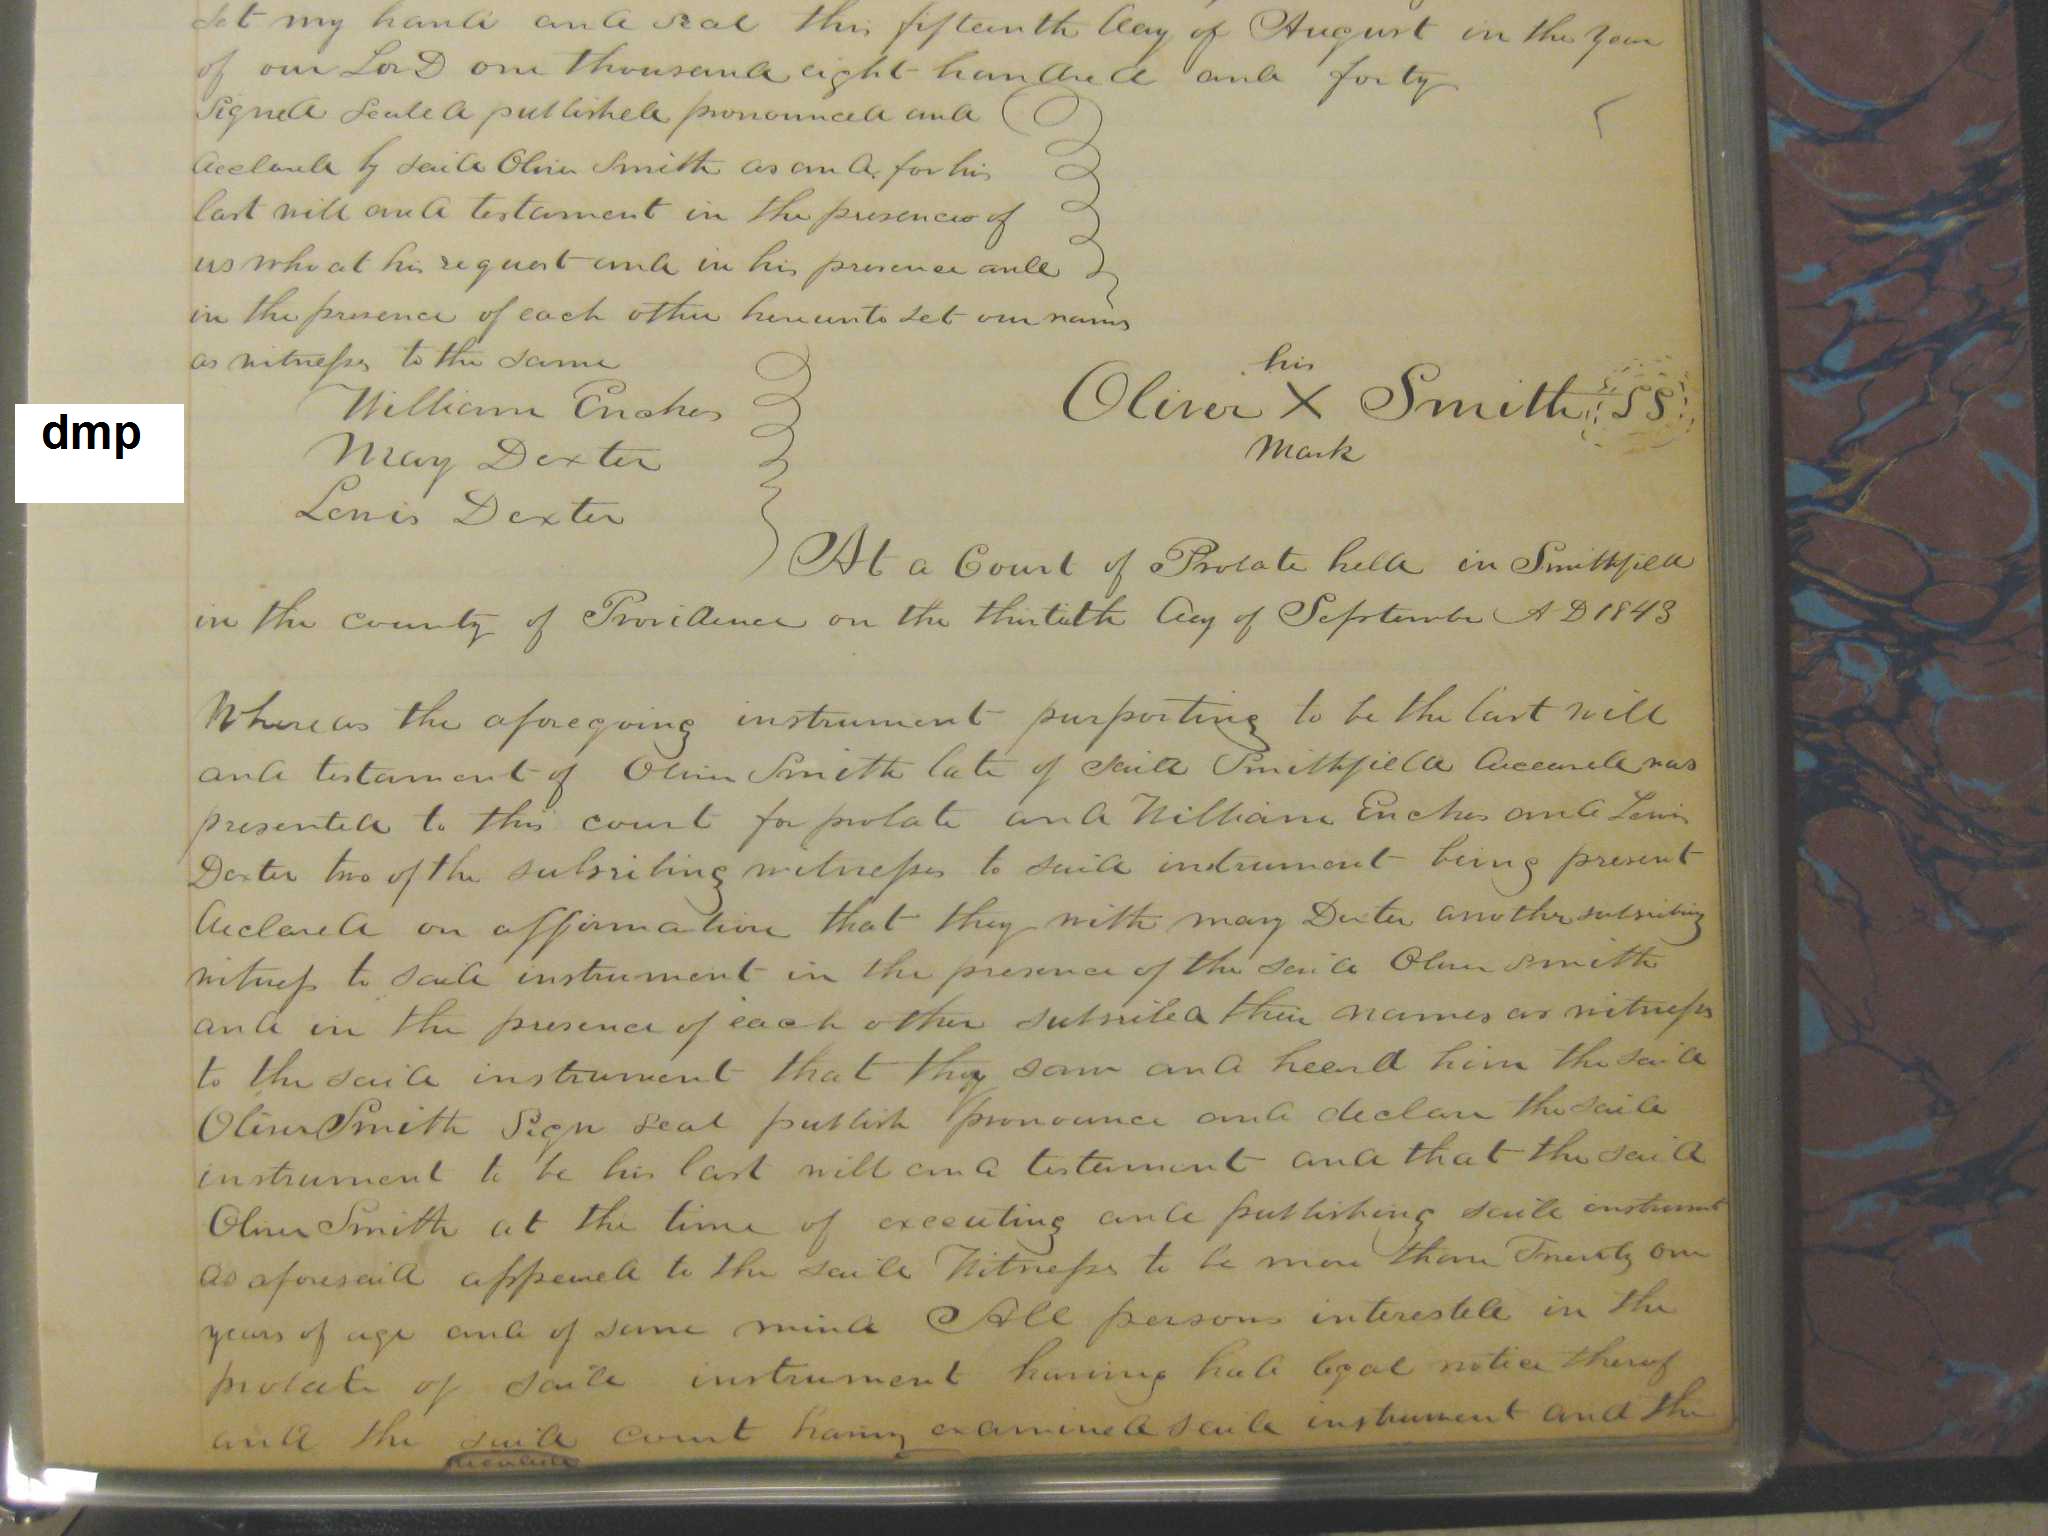 set my hand and seal this fifteenth day of August in the year
of our Lord one thousand eight hundred and forty
Signed sealed published pronounced and
declared by said Oliver Smith as and for his
last will and testament in the presences of
us who at his request and in his presence and
in the presence of each other hereunto set our names
as witnesses to the same
his
William Enches
Oliver X Smith SS
dmp
May Dexter
Mark
Lewis Dexter
At a Court of Probate held in Smithfield
in the county of Providence on the thirtieth day of September A D 1843
Whereas the aforegoing instrument purporting to be the last will
and testament of Oliver Smith late of said Smithfield deceased was
presented to this court for probate and William Enches and Lewis
Dexter two of the subsribing witnesses to said instrument being present
declared on affirmation that they with may Dexter another subsribing
witness to said instrument in the presence of the said Oliver Smith
and in the presence of each other subsribed their names as witness
to the said instrument that they saw and heard him the said
Oliver Smith Sign seal publish pronounce and declare the said
instrument to be his last will and testament and that the said
Oliver Smith at the time of executing and publishing said instrument
as aforesaid appeared to the said Witnesses to be more than Twenty one
years of age and of sane mind All persons interested in the
probate of said instrument having had legal notice thereof
and the said court having examined said instrument and the